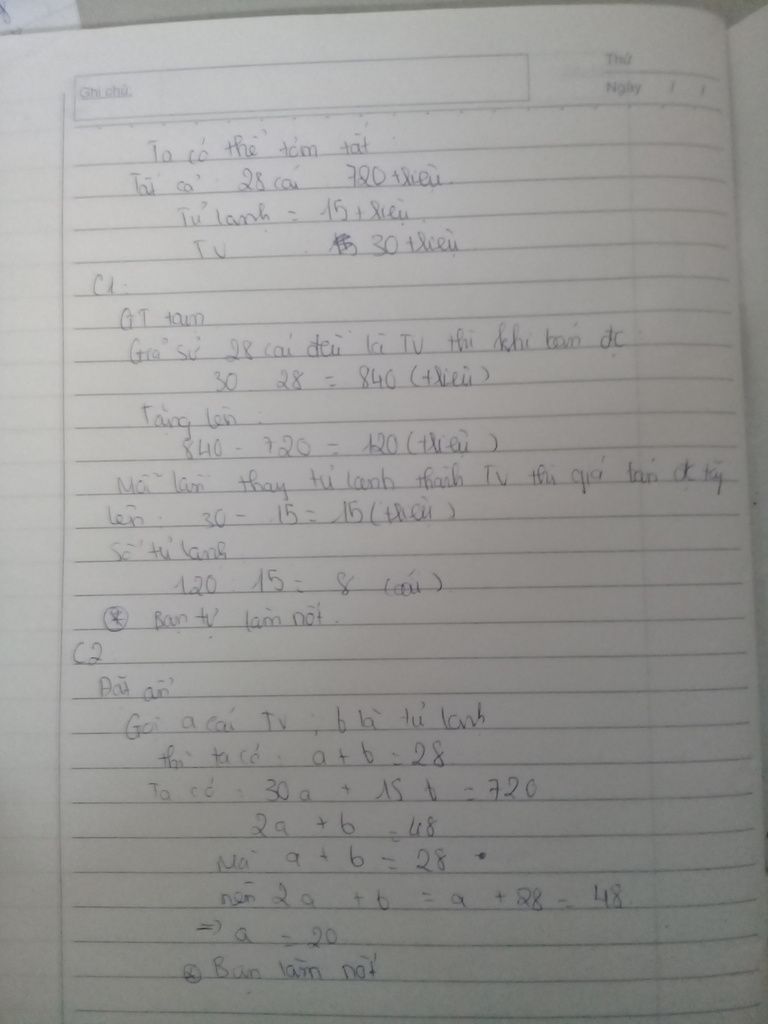 Thứ
Ghi chú:
Ngày / /
Ta có thể tóm tắt
Tất cả 28 cái 720 triệu
Tủ lạnh = 15 triệu
TV 30 triệu
C1.
GT tạm
Giả sử 28 cái đều là TV thì khi bán đc
30 28 = 840 (triệu)
Tăng lên:
840 - 720 = 120 (triệu)
Mỗi lần thay tủ lạnh thành TV thì giá bán đc tăg
lên: 30 - 15 = 15 (triệu)
Số tủ lạnh
120 : 15 = 8 (cái)
* Bạn tự làm nốt.
C2
Đặt ẩn
Gọi a cái TV, b là tủ lạnh
thì ta có: a + b = 28
Ta có: 30a + 15 b = 720
2a + b = 48
Mà a + b = 28
nên 2a + b = a + 28 = 48
=> a = 20
* Bạn làm nốt